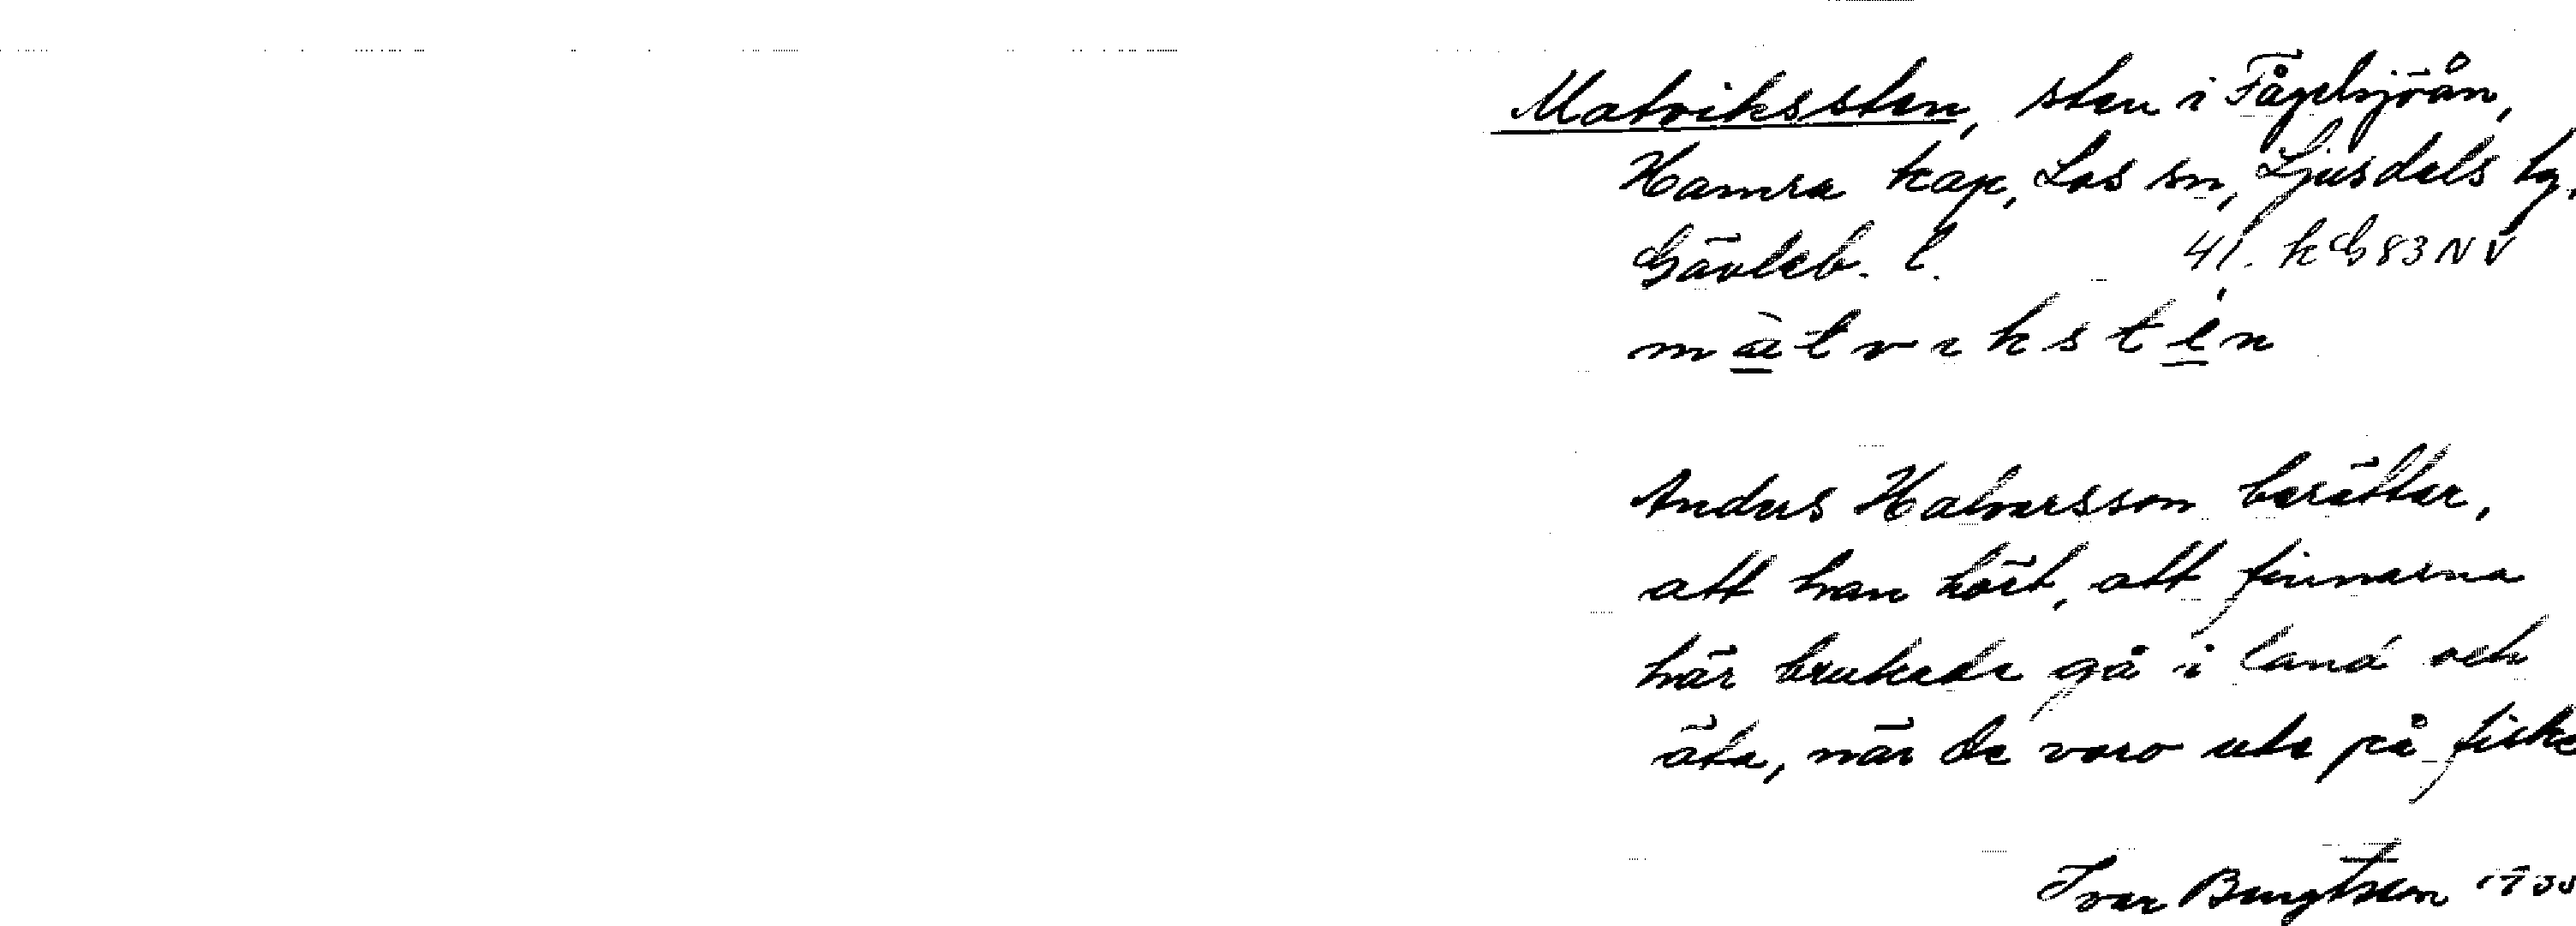 Matvikssten, sten i Fågelsjöån,
Hamra kap, Los sn, Ljusdals tg,
Gävleb. l. 41. k G 83 NV
màtvikstén
Anders Halvarsson berättar,
att han hört, att finnarna
här brukade gå i land och
äta, när de voro ute på fiske
Ivar Bengtsson